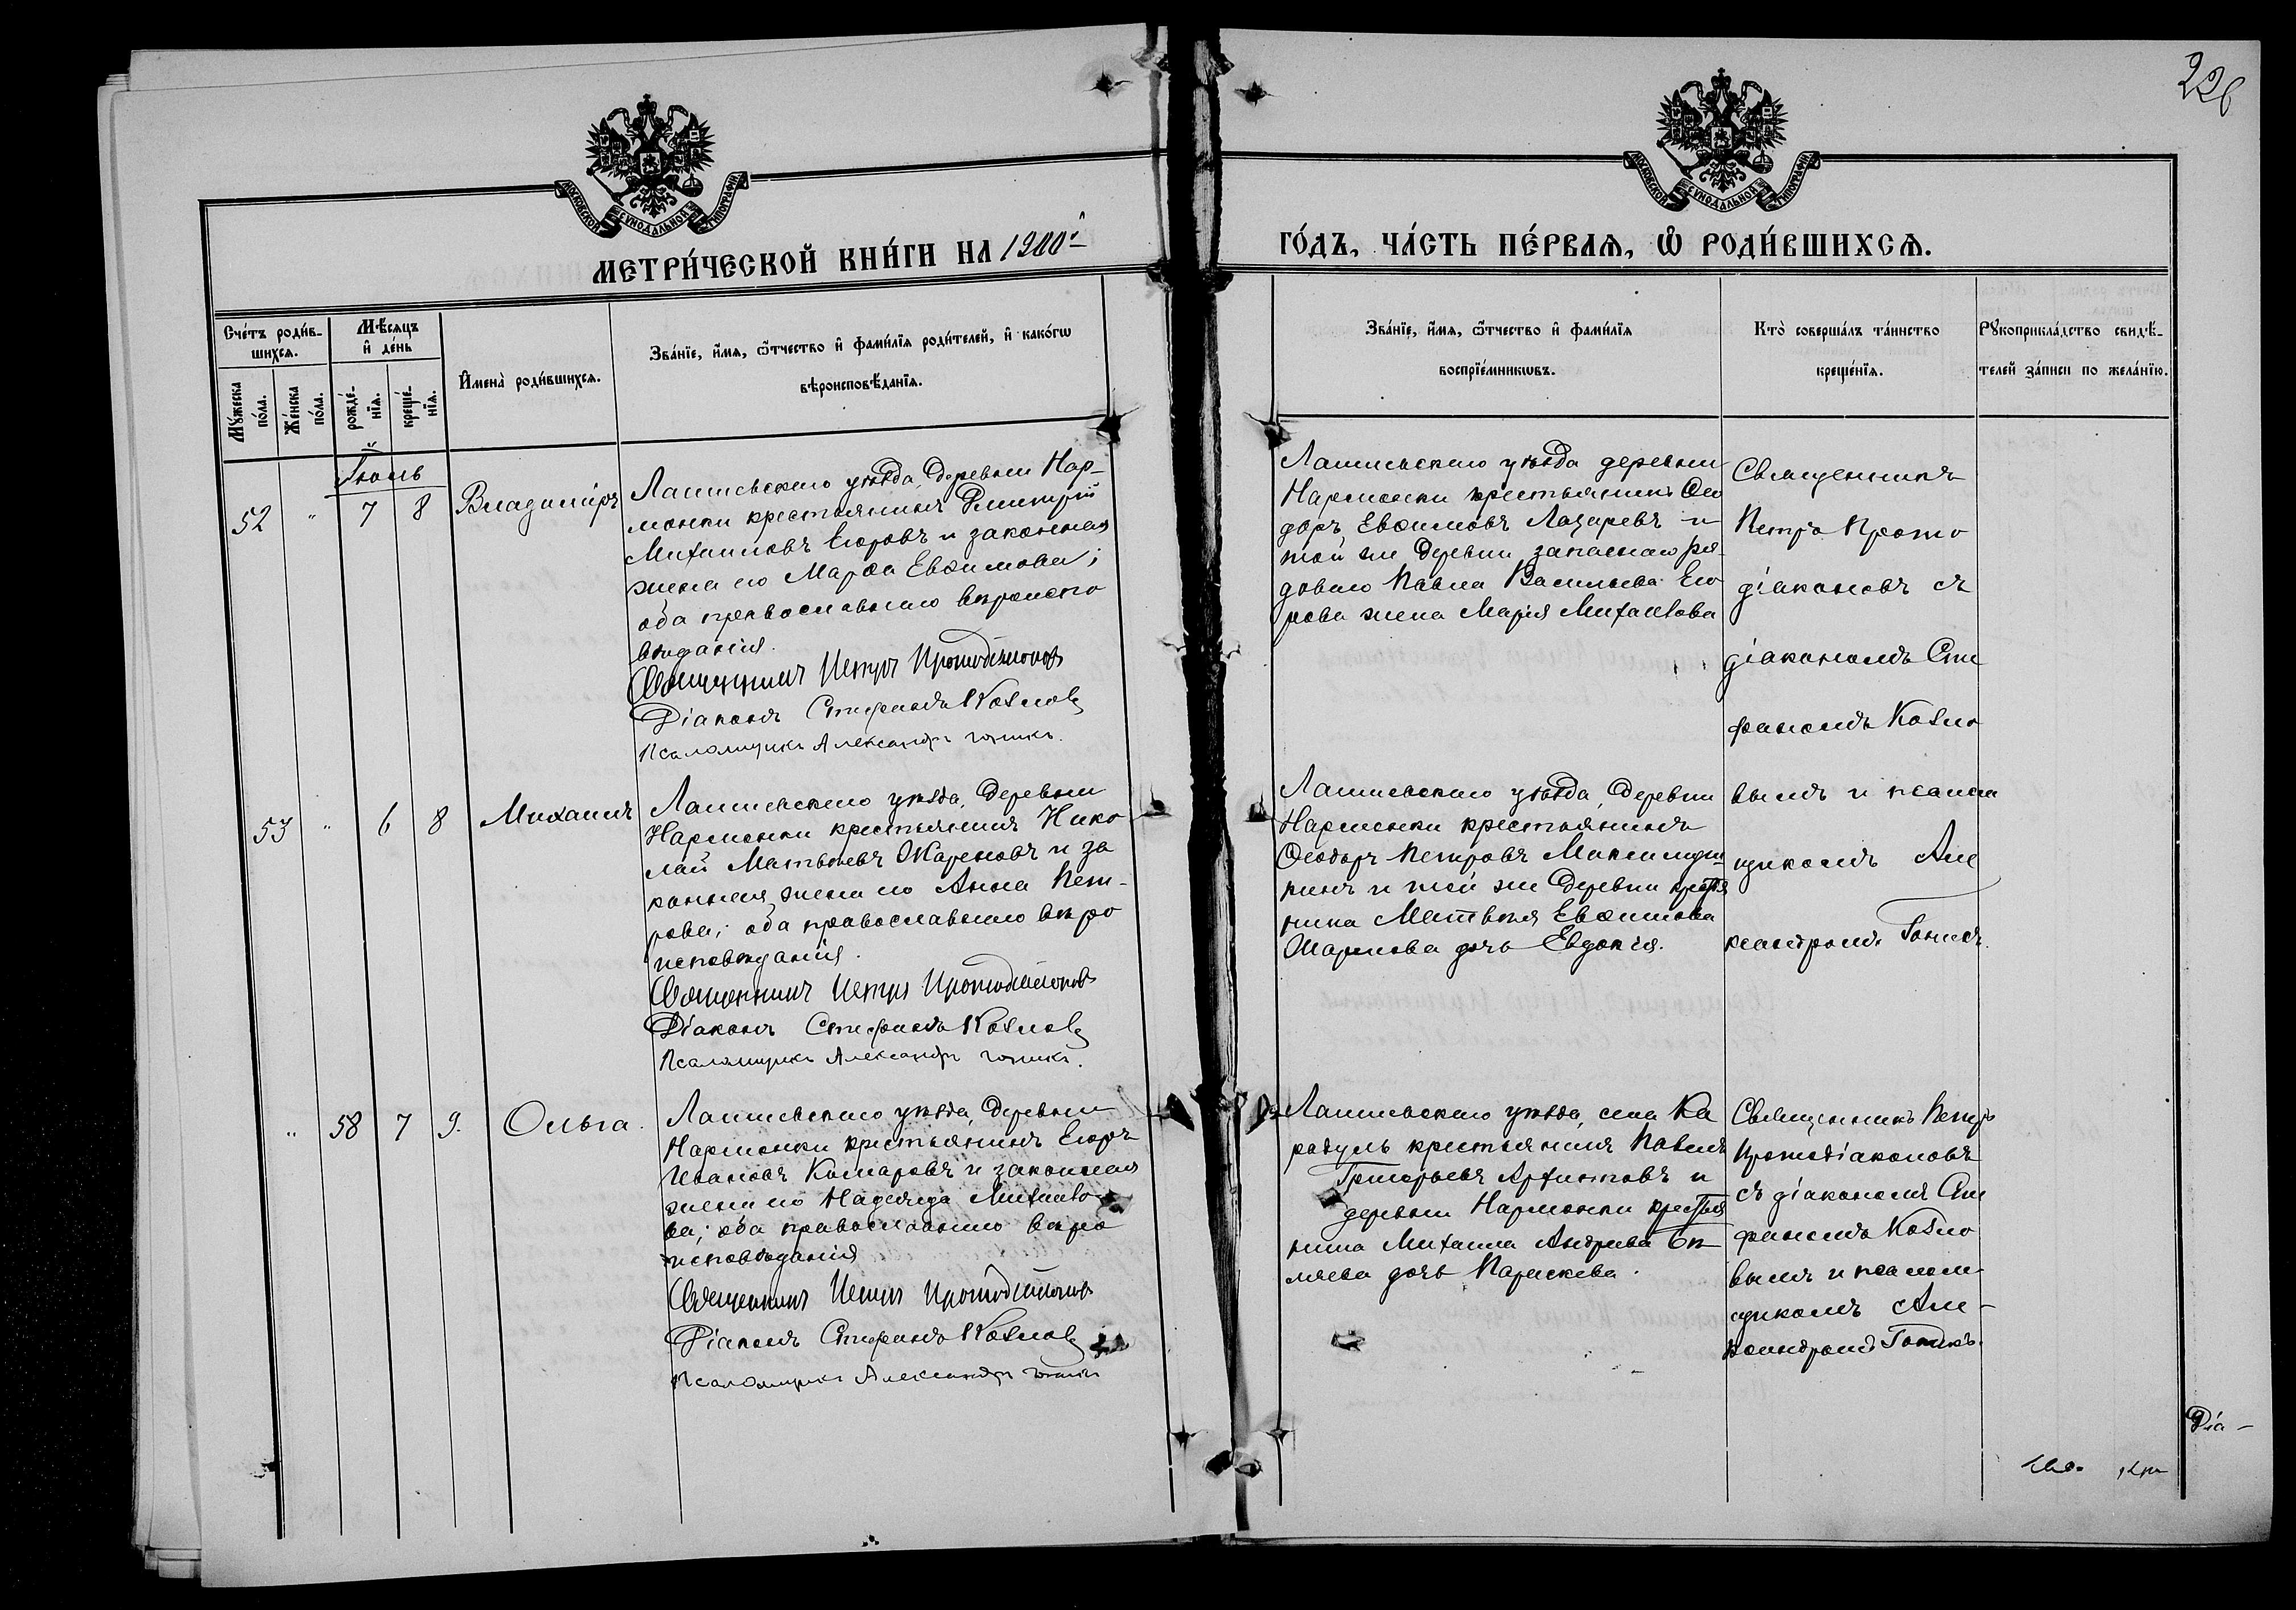 226
МОСКОВСКОЙ СѴНОДАЛЬНОЙ ТИПОГРАФІИ
МОСКОВСКОЙ СѴНОДАЛЬНОЙ ТИПОГРАФІИ
МЕТРИ́ЧЕСКОЙ КНИ́ГИ НА 1900й
ГО́ДЪ, ЧА́СТЬ ПЕ́РВАѦ, Ѡ҆ РОДИ́ВШИХСѦ.
Сче́тъ роди́в-
шихсѧ.
Мꙋ́жеска
по́ла.
Же́нска
по́ла.
Мѣ́сѧцъ
и҆ де́нь
рожде́-
нїѧ.
креще́-
нїѧ.
И҆мена̀ роди́вшихсѧ.
Зва́нїе, и҆́мѧ, ѻ҆́тчество и҆ фами́лїѧ роди́телей, и҆ како́гѡ
вѣроисповѣ́данїѧ.
Зва́нїе, и҆́мѧ, ѻ҆́тчество и҆ фами́лїѧ
воспрїе́мникѡвъ.
Кто̀ соверша́лъ та́инство
креще́нїѧ.
Рꙋкоприкла́дство свидѣ́-
телей за́писи по жела́нїю.
Іюль
52 " 7 8 Владиміръ
Лаишевскаго уѣзда, деревни Нар-
монки крестьянинъ Димитрій
Михаиловъ Егоровъ и законная
жена его Марѳа Евѳимова;
оба православнаго вѣроиспо
вѣданія.
Священникъ Петръ Протодіаконовъ
Діаконъ Стефанъ Козловъ
Псаломщикъ Александръ Гонихъ.
Лаишевскаго уѣзда деревни
Нармонки крестьянинъ Ѳео
доръ Евѳимовъ Лазаревъ и
той же деревни запаснаго ря-
доваго Павла Васильева Его
рова жена Марія Михаилова
Священникъ
Петръ Прото
діаконовъ съ
діакономъ Сте
фаномъ Козло
вымъ и псалом
щикомъ Але
ксандромъ Гонихъ.
53 " 6 8 Михаилъ
Лаишевскаго уѣзда, деревни
Нармонки крестьянинъ Нико
лай Матвѣевъ Жареновъ и за
конная жена его Анна Пет-
рова; оба православнаго вѣро
исповѣданія.
Священникъ Петръ Протодіаконовъ
Діаконъ Стефанъ Козловъ
Псаломщикъ Александръ Гонихъ.
Лаишевскаго уѣзда, деревни
Нармонки крестьянинъ
Ѳеодоръ Петровъ
и той же деревни крестья
нина Матвѣя Евѳимова
дочь Евдокія.
" 58 7 9. Ольга.
Лаишевскаго уѣзда, деревни
Нармонки крестьянинъ Егоръ
Ивановъ Комаровъ и законная
жена его Надежда Михаило
ва; оба православнаго вѣро
исповѣданія
Священникъ Петръ Протодіаконовъ
Діаконъ Стефанъ Козловъ
Псаломщикъ Александръ Гонихъ
Лаишевскаго уѣзда, села Ка
радуль крестьянинъ Павелъ
Григорьевъ Архиповъ и
деревни Нармонки крестья
нина Михаила Андреева Бѣ
ляева дочь Параскева.
Священникъ Петръ
Протодіаконовъ
съ діакономъ Сте
фаномъ Козло
вымъ и псалом-
щикомъ Але-
ксандромъ Гонихъ.
Діа-